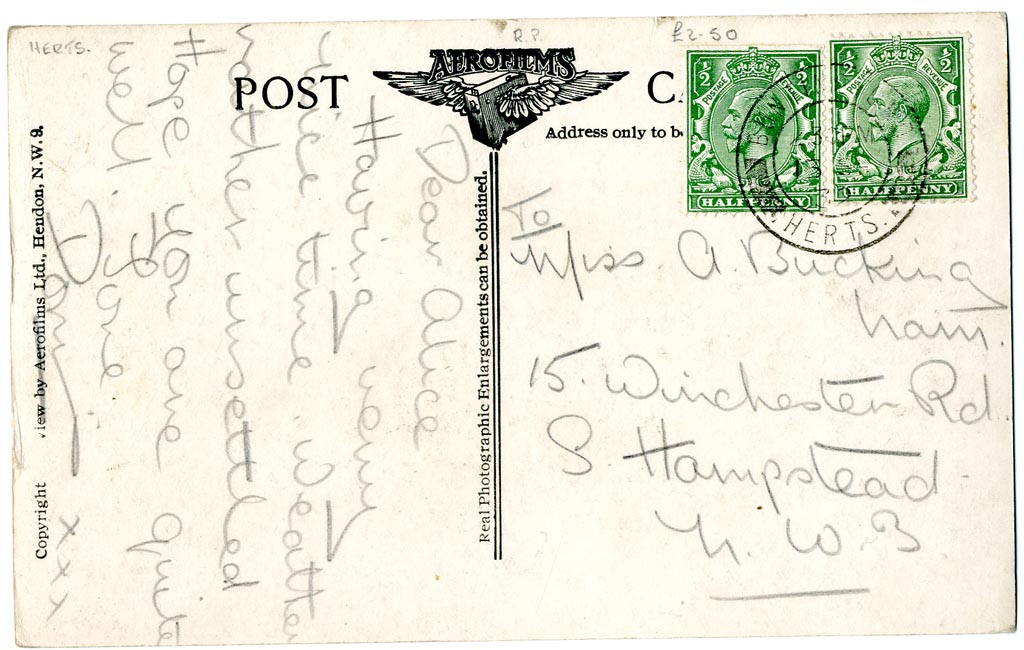 HERTS.
R.P.
£2-50
POST C
AEROFILMS
Address only to b
Dear Alice
Having very
nice time. Weather
rather unsettled
Hope you are quite
well.
Love
xxx
Copyright view by Aerofilms Ltd., Hendon, N.W. 9.
Real Photographic Enlargements can be obtained.
½ ½
POSTAGE REVENUE
HALFPENNY
½ ½
POSTAGE REVENUE
HALFPENNY
HERTS.
To
Miss A. Bucking
ham.
15. Winchester Rd.
S. Hampstead.
N.W.3.